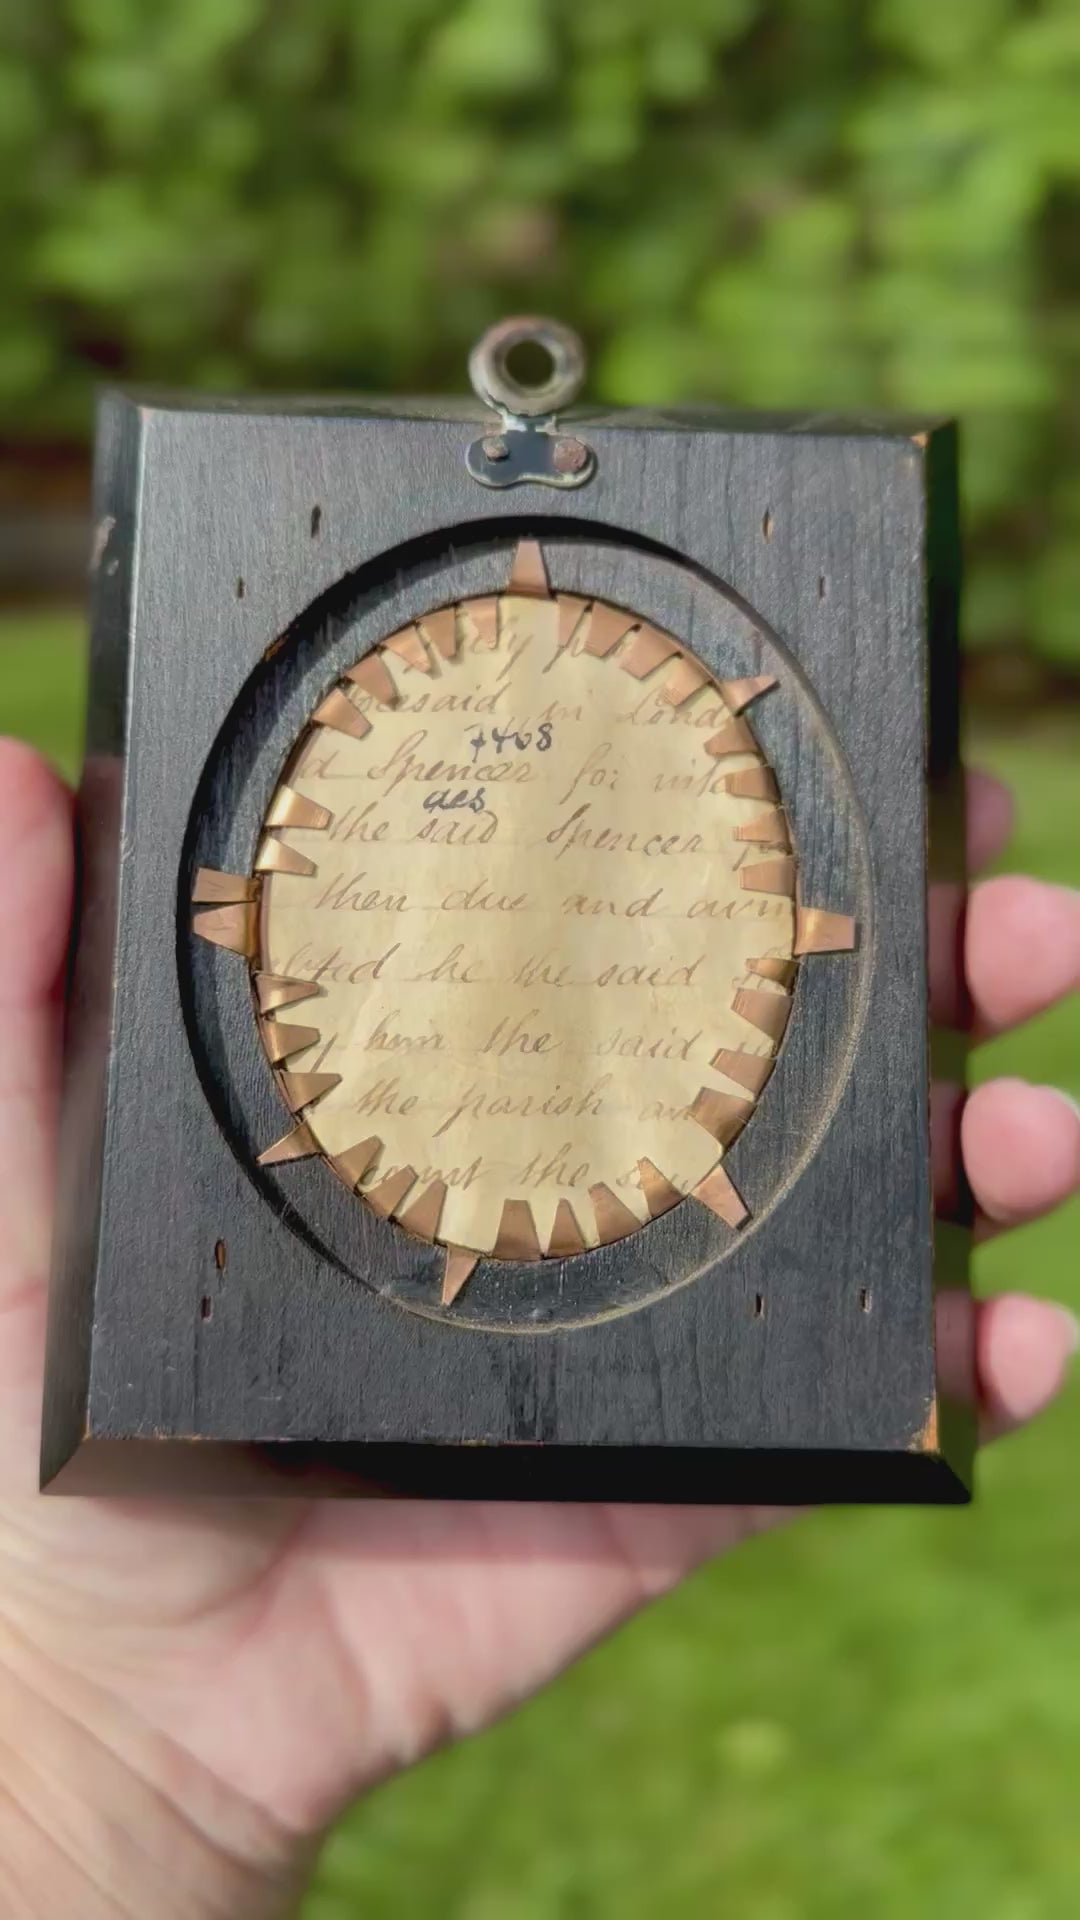 said in Lond
7408
d Spencer for
des
the said Spencer
then due and
he the said
him the said
the parish an
the